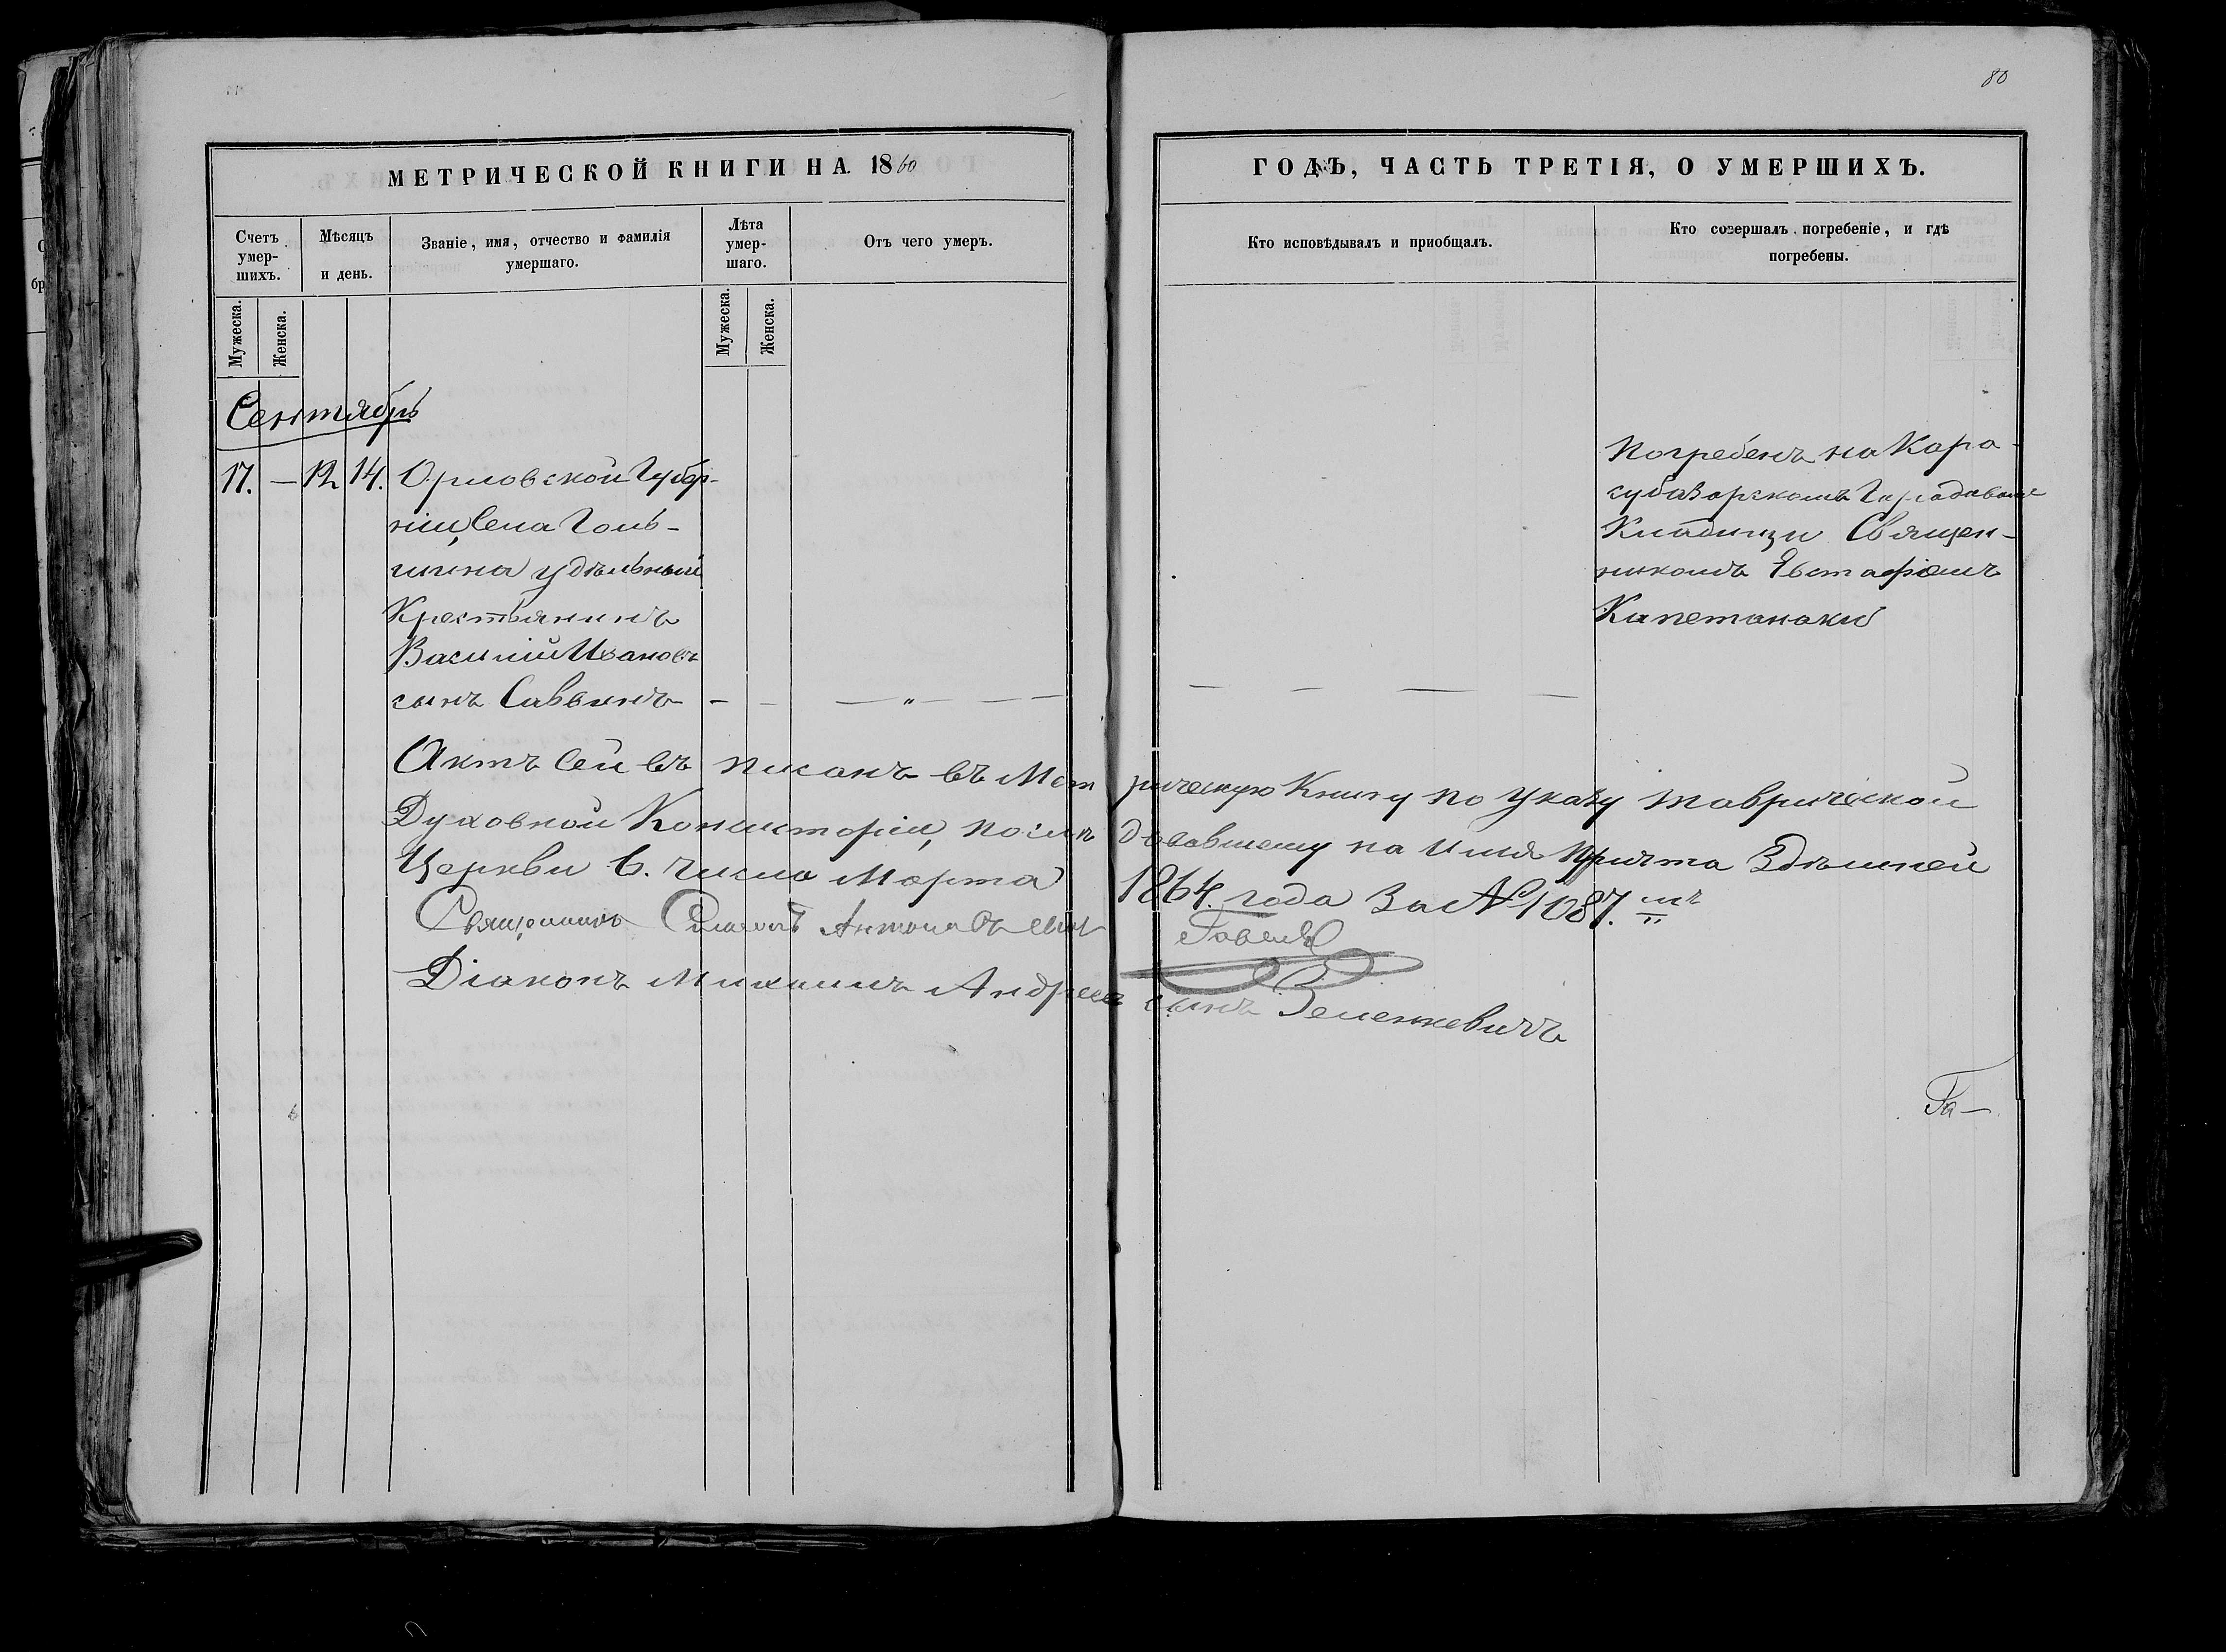 80
МЕТРИЧЕСКОЙ КНИГИ НА 1860
ГОДЪ, ЧАСТЬ ТРЕТІЯ, О УМЕРШИХЪ.
Счетъ умер-шихъ.
Мѣсяцъ и день.
Званіе, имя, отчество и фамилія умершаго.
Лѣта умер-шаго.
Отъ чего умеръ.
Кто исповѣдывалъ и приобщалъ.
Кто совершалъ погребеніе, и гдѣ погребены.
Мужеска.
Женска.
Мужеска.
Женска.
Сентябрь
17. — 12 14. Орловской Губер-
ніи, Села Голь-
шина удѣльный
Крестьянинъ
Василій Ивановъ
сынъ Саввинъ — — — „ — —
Погребенъ на Кара-
субазарскомъ Городовомъ
Кладищи Священ-
никомъ Евстафіемъ
Капетанаки
Актъ сей въ писанъ въ Метрическую Книгу по Указу Таврической
Духовной Консисторіи, послѣдовавшему на Имя Причта Здѣшней
Церкви 6. число Марта 1864. года За № 1087. мъ
Священникъ Антоновъ сынъ
Діаконъ Михаилъ Андреевъ сынъ Зеленкевичъ
Га—